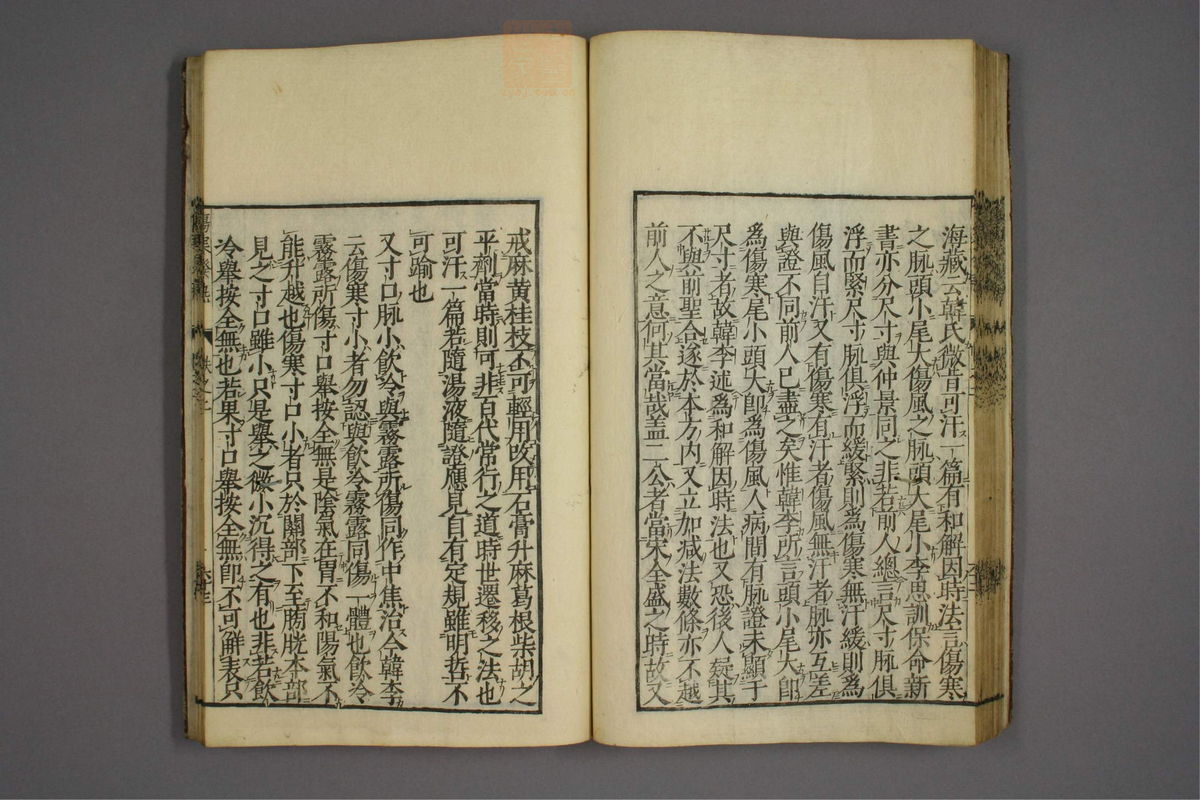 海藏云韓氏微旨可汗一篇有和解因時法言傷寒
之脉頭小尾大傷風之脉頭大尾小李思訓保命新
書亦分尺寸與仲景同之非若前人總言尺寸脉俱
浮而緊尺寸脉俱浮而緩緊則爲傷寒無汗緩則爲
傷風自汗又有傷寒有汗者傷風無汗者脉亦互差
與證不同前人已盡之矣惟韓李所言頭小尾大即
爲傷寒尾小頭大即爲傷風人病間有脉證未顯于
尺寸者故韓李述爲和解因時法也又恐後人疑其
不與前聖合遂於本方内又立加减法數條亦不越
前人之意何其當哉盖二公者當宋全盛之時故又
戒麻黄桂枝不可輕用改用石膏升麻葛根柴胡之
平劑當時則可非百代常行之道時世遷移之法也
可汗一篇若隨湯液隨證應見自有定規雖明哲不
可踰也
又寸口脉小飲冷與霧露所傷同作中焦治今韓李
云傷寒寸小者勿認與飲冷霧露同傷一體也飲冷
霧露所傷寸口舉按全無是陰氣在胃不和陽氣不
能升越也傷寒寸口小者只於關部下至膀胱本部
見之寸口雖小只是舉之微小沉得之有也非若飲
冷舉按全無也若果寸口舉按全無即不可解表只